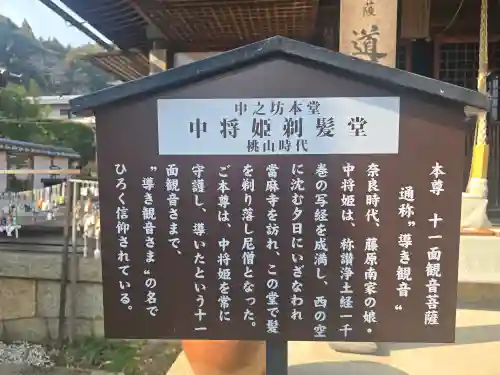 薩
道
中之坊本堂
中将姫剃髪堂
桃山時代
本尊 十一面観音菩薩
通称〝導き観音〟
奈良時代、藤原南家の娘・
中将姫は、称讃浄土経一千
巻の写経を成満し、西の空
に沈む夕日にいざなわれ
當麻寺を訪れ、この堂で髪
を剃り落し尼僧となった。
ご本尊は、中将姫を常に
守護し、導いたという十一
面観音さまで、
〝導き観音さま〟の名で
ひろく信仰されている。